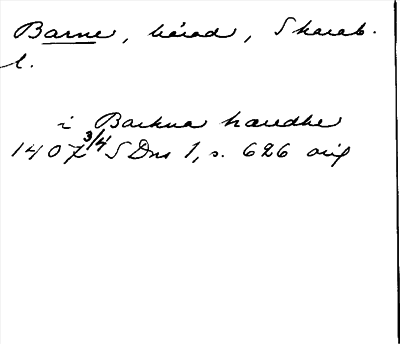 Barne, härad, Skarab.
l.
i Barkna haredhe
1407 3/4 SDns 1, s. 626 orig